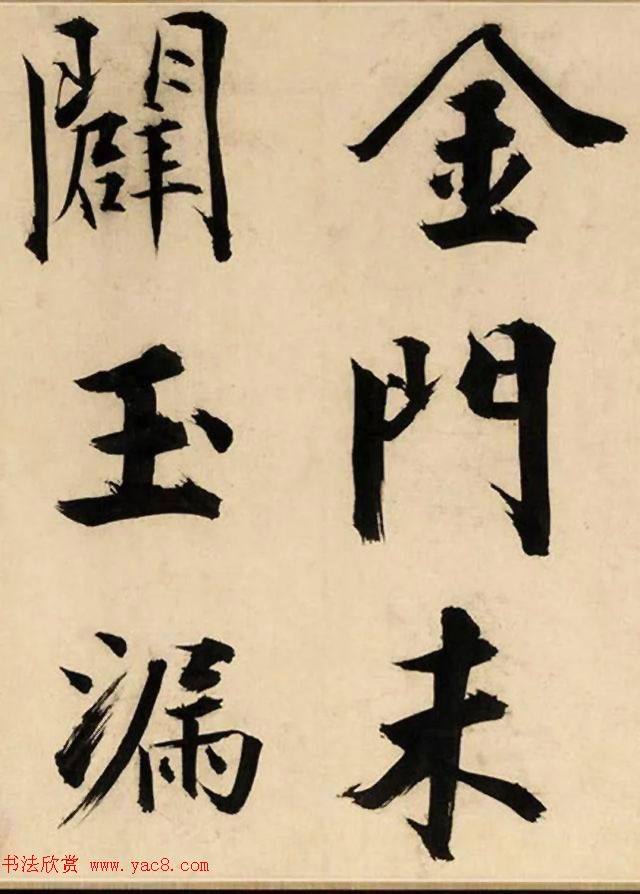 金門未
闢玉漏
书法欣赏 www.yac8.com